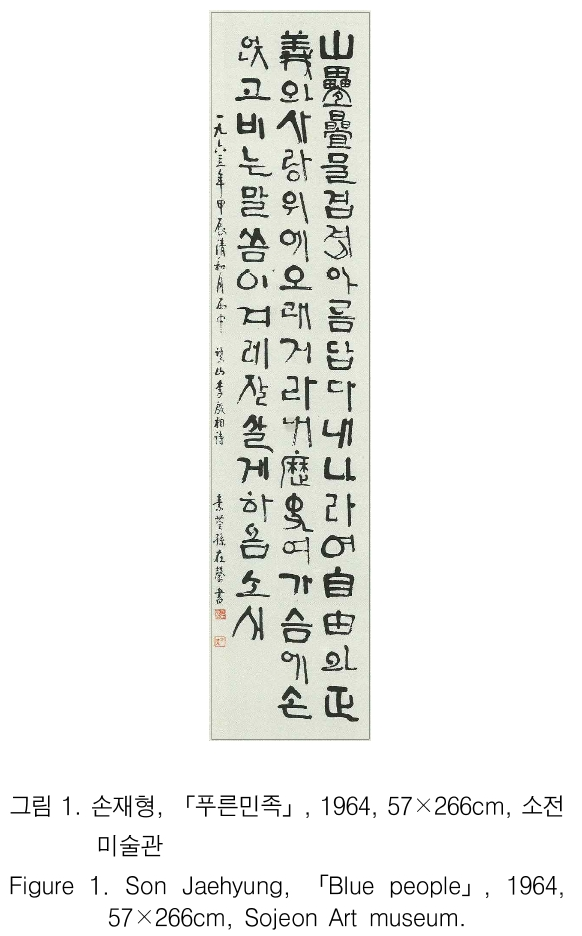 山壘疊믈겹겹아름답다내나라여自由와正
義와사랑위에오래거라내歷史여가슴에손
얹고비는말씀이겨레잘쌀게하옵소서
一九六 年甲辰清和月雨中 鷺山李殷相詩 素荃孫在馨書
그림 1. 손재형, 「푸른민족」, 1964, 57×266cm, 소전
미술관
Figure 1. Son Jaehyung, 「Blue people」, 1964,
57×266cm, Sojeon Art museum.